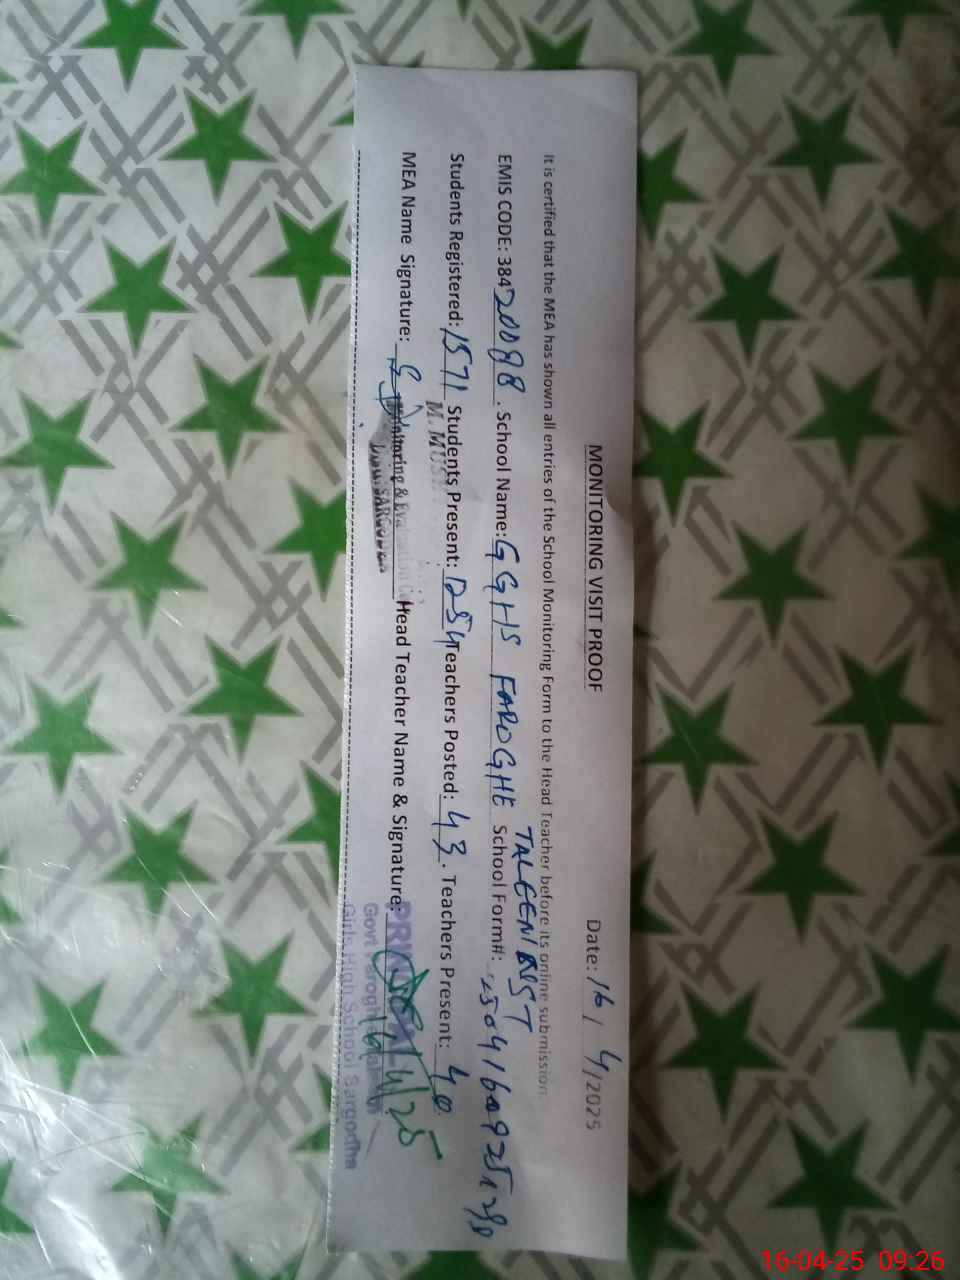 MONITORING VISIT PROOF
Date: 16 / 4/2025
It is certified that the MEA has shown all entries of the School Monitoring Form to the Head Teacher before its online submission.
EMIS CODE: 38420098. School Name: GGHS FAROGHE School Form#:
Students Registered: 1571 Students Present: 1254 Teachers Posted: 43. Teachers Present: 40
M. MUS
MEA Name Signature: Head Teacher Name & Signature:
Monitoring &
SARGODHA
PRINCIPAL
16/4/25
Govt
Girls High School Sargodha
16-04-25 09:26